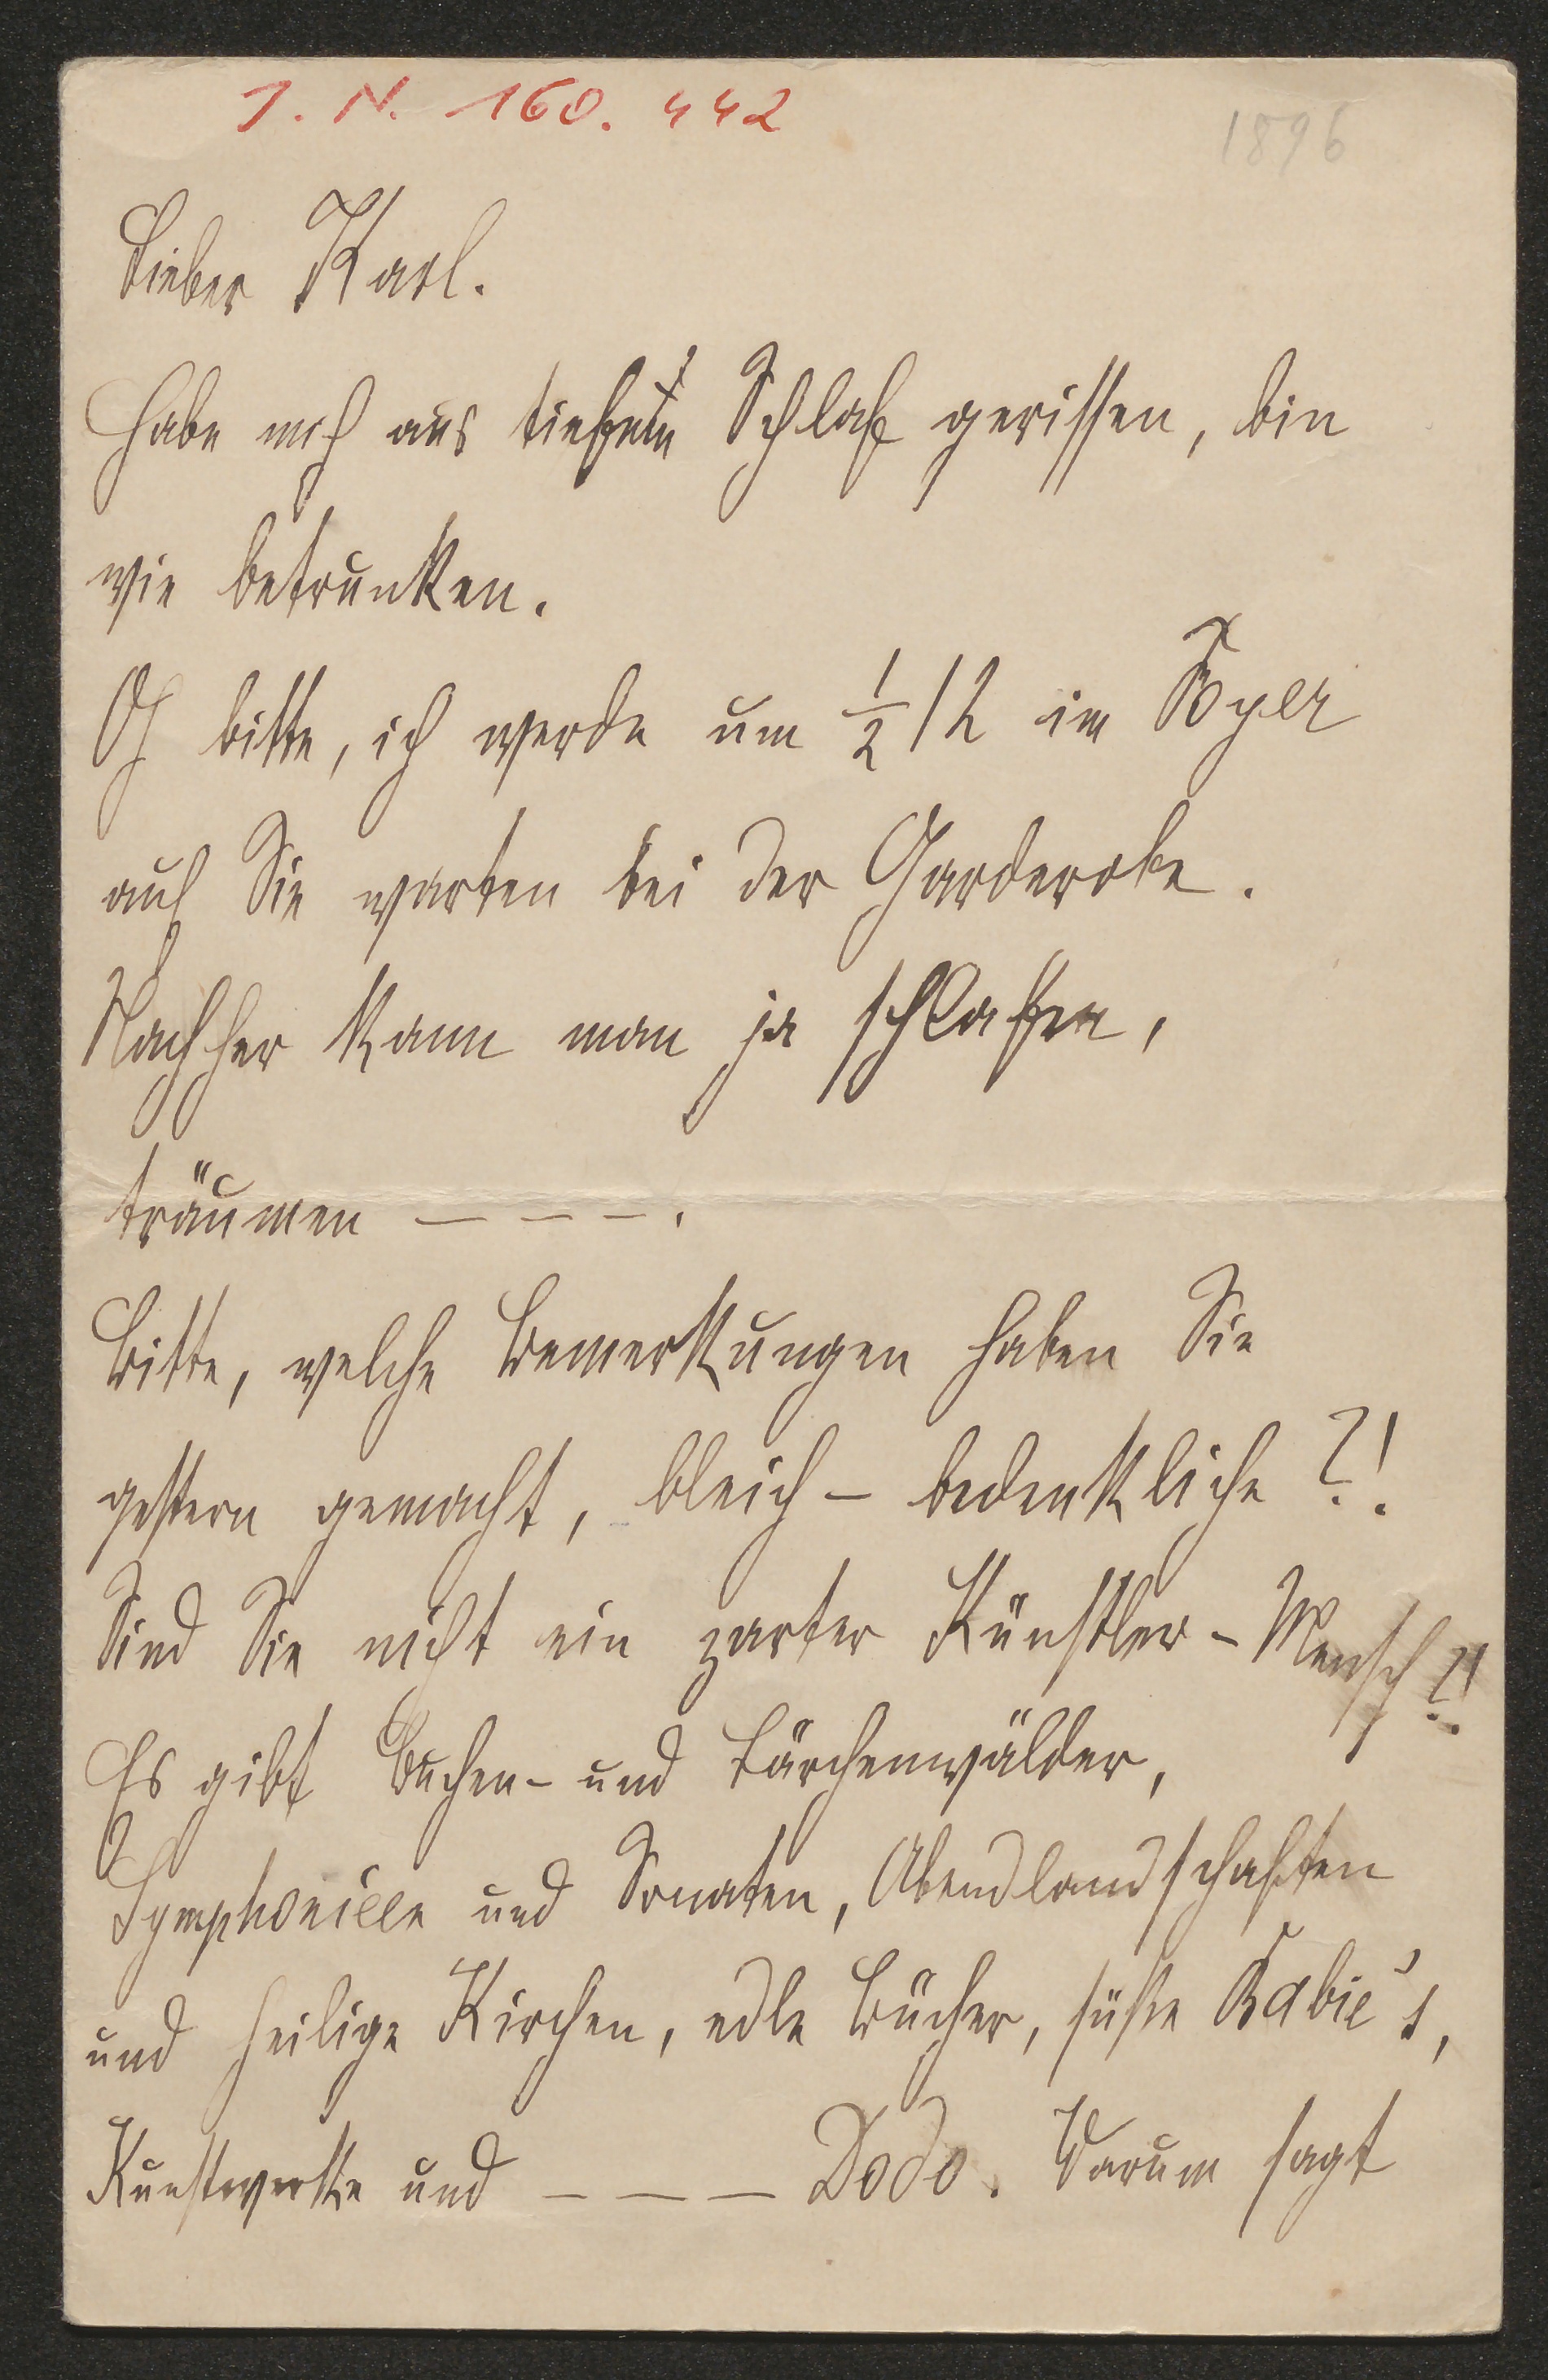 J. N. 160.442
1896
Lieber Karl.
Habe mich aus tiefem Schlaf gerissen, bin
wie betrunken.
O bitte, ich werde um ½ 12 im Foyer
auf Sie warten bei der Garderobe.
Nachher kann man ja schlafen,
träumen – – – .
Bitte, welche Bemerkungen haben Sie
gestern gemacht, bleich – bedenkliche?!
Sind Sie nicht ein zarter Künstler-Mensch?!
Es gibt Buchen- und Lärchenwälder,
Symphonieen und Sonaten, Abendlandschaften
und heilige Kirchen, edle Bücher, süße
Kunstwerke und – – – Dodo. Warum sagt